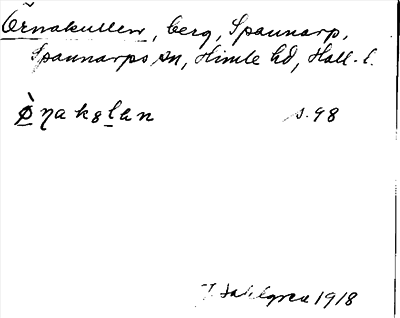 Örnakullen, berg, Spannarp,
Spannarps sn, Himle hd, Hall. l.
ø̀ṇakslan s. 98
J. Sahlgren 1918